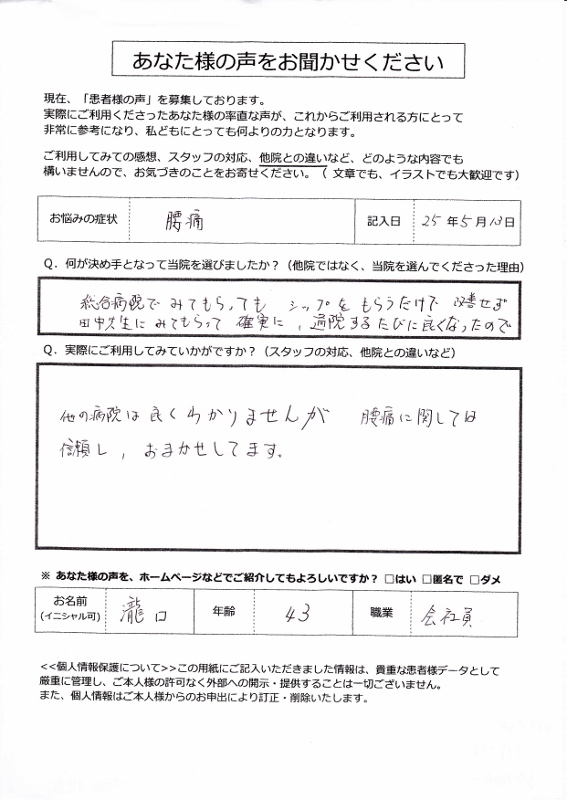 あなた様の声をお聞かせください
現在、「患者様の声」を募集しております。
実際にご利用くださったあなた様の率直な声が、これからご利用される方にとって
非常に参考になり、私どもにとっても何よりの力となります。
ご利用してみての感想、スタッフの対応、他院との違いなど、どのような内容でも
構いませんので、お気づきのことをお寄せください。（ 文章でも、イラストでも大歓迎です）
お悩みの症状 腰痛 記入日 25 年 5 月 13 日
Q．何が決め手となって当院を選びましたか？（他院ではなく、当院を選んでくださった理由）
総合病院で みてもらっても シップを もらうだけで 改善せず
田中先生に みてもらって 確実に，通院するたびに良くなったので
Q．実際にご利用してみていかがですか？（スタッフの対応、他院との違いなど）
他の病院は良くわかりませんが 腰痛に関しては
信頼し，おまかせしてます。
※ あなた様の声を、ホームページなどでご紹介してもよろしいですか？ □はい □匿名で □ダメ
お名前 瀧口 年齢 43 職業 会社員
(イニシャル可)
<<個人情報保護について>>この用紙にご記入いただきました情報は、貴重な患者様データとして
厳重に管理し、ご本人様の許可なく外部への開示・提供することは一切ございません。
また、個人情報はご本人様からのお申出により訂正・削除いたします。